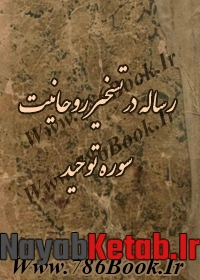 رساله در تسخیر روحانیت
www.786Book.Ir
سوره توحید
NayabKetab.Ir
www.786Book.Ir